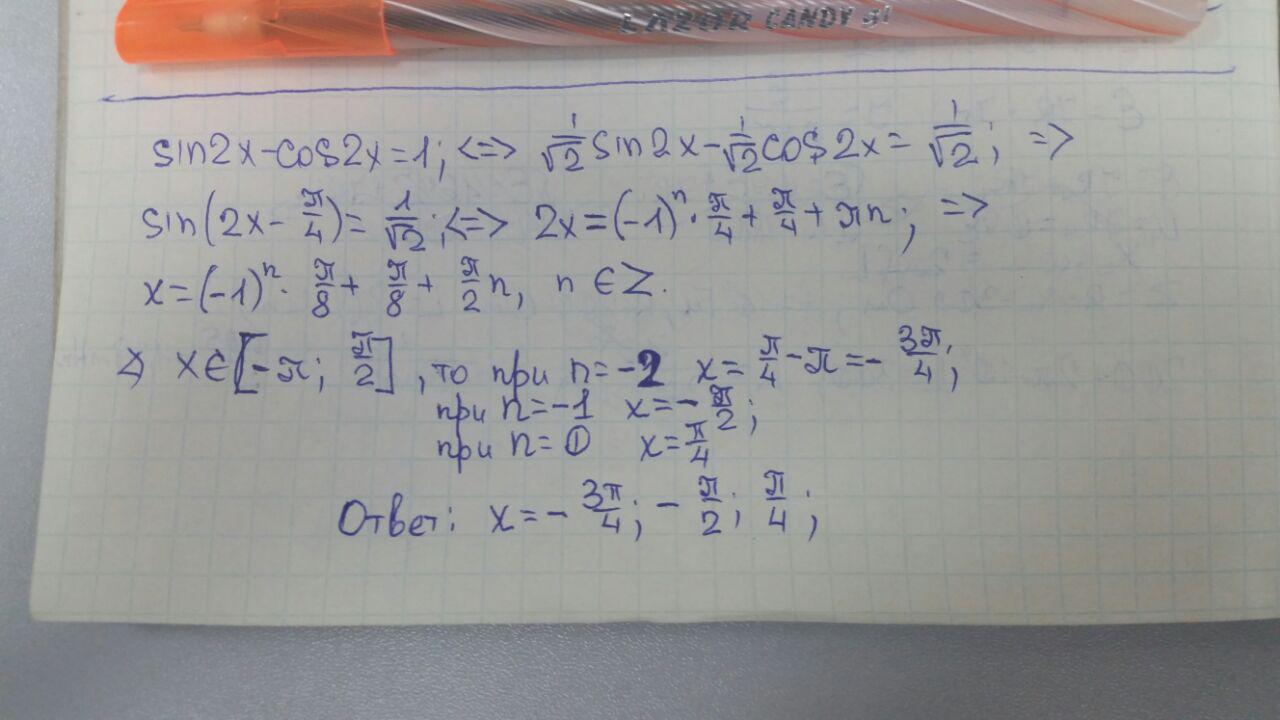 LAZOR CANDY
sin2x-cos2x=1; <=> 1/√2 sin2x - 1/√2 cos2x = 1/√2; =>
sin(2x - π/4) = 1/√2; <=> 2x = (-1)ⁿ · π/4 + π/4 + πn; =>
x = (-1)ⁿ · π/8 + π/8 + π/2 n, n ∈ Z.
x ∈ [-π; π/2], то при n = -2 x = π/4 - π = - 3π/4;
при n = -1 x = - π/2;
при n = 0 x = π/4
Ответ: x = - 3π/4; - π/2; π/4;